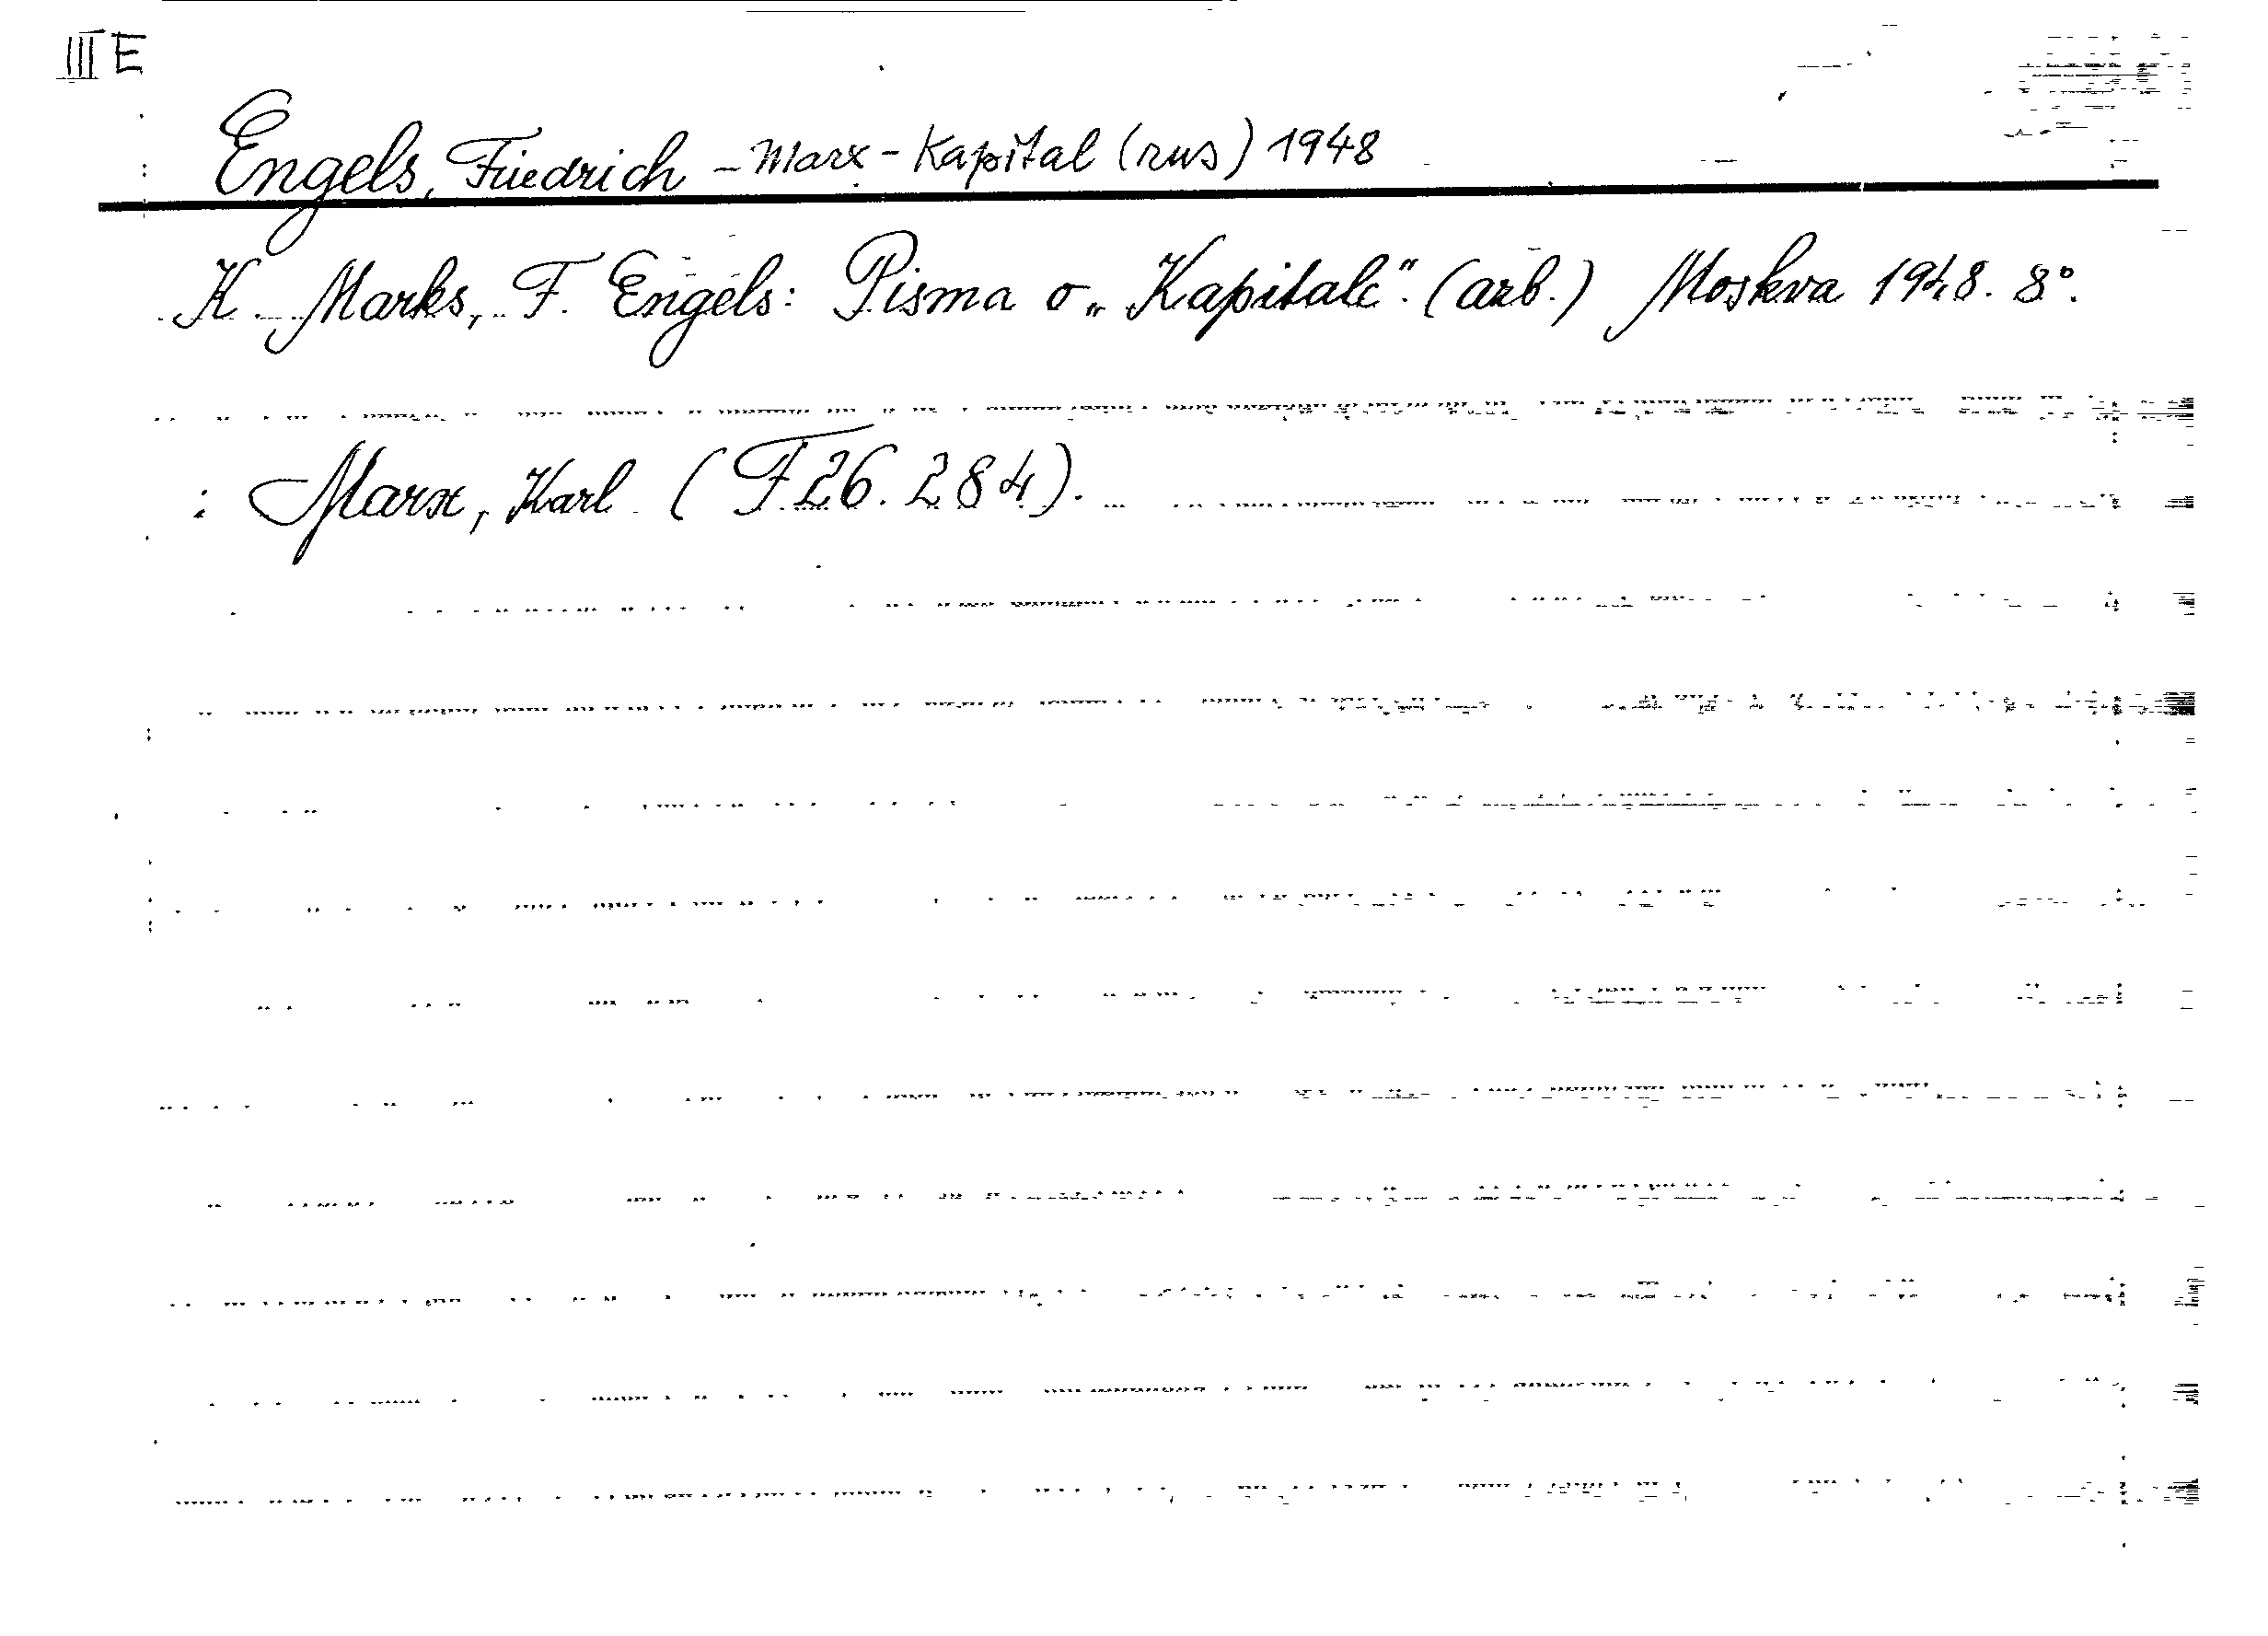 III E
Engels, Friedrich - Marx - Kapital (rus) 1948
K. Marks, F. Engels: Pisma o „Kapitale". (azb.) Moskva 1948. 8°.
: Marx, Karl (F 26.284).